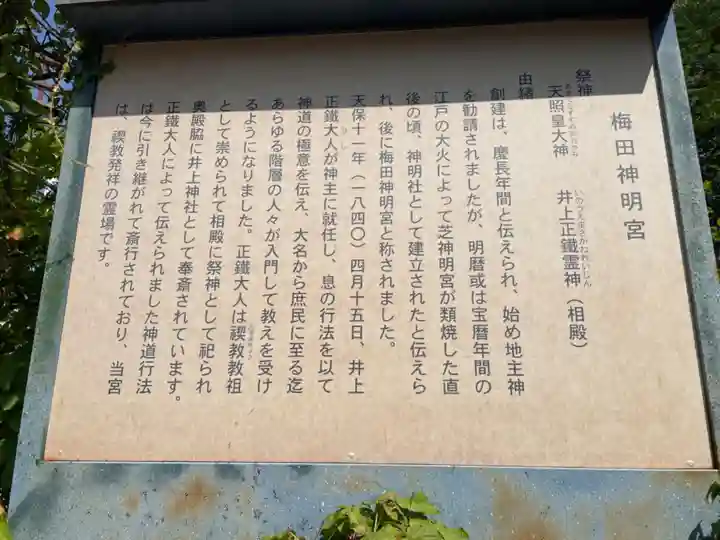 梅田神明宮
祭神
天照皇大神　井上正鐵霊神（相殿）
いのうえまさかねれいじん
由緒
創建は、慶長年間と伝えられ、始め地主神
を勧請されましたが、明暦或は宝暦年間の
江戸の大火によって芝神明宮が類焼した直
後の頃、神明社として建立されたと伝えら
れ、後に梅田神明宮と称されました。
天保十一年（一八四〇）四月十五日、井上
正鐵大人が神主に就任し、息の行法を以て
神道の極意を伝え、大名から庶民に至る迄
あらゆる階層の人々が入門して教えを受け
るようになりました。正鐵大人は禊教教祖
として崇められて相殿に祭神として祀られ
奥殿脇に井上神社として奉斎されています。
正鐵大人によって伝えられました神道行法
は今に引き継がれて斎行されており、当宮
は、禊教発祥の霊場です。